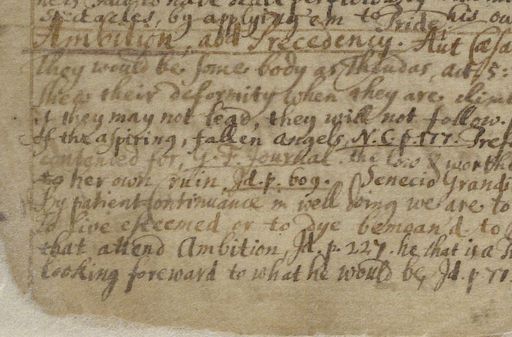 spectacles, by applying 'em to his ou
Pride
Ambition, and Precedency. Aut Cæsa
they would be some body as Theudas, act. 5:
shew their deformity when they are
if they may not lead, they will not follow.
Of the aspiring, fallen angels, N.C.p.177. Pref
contended for, G. F. Journal the low & worth
to her own ruin, Jd. p. 609. Senecio Grand
By patient continuance in well doing we are to
To live esteemed or to dye bemoan'd to
that attend Ambition, Jd. p. 227. he that is a
looking foreward to what he would be, Jd. p 71